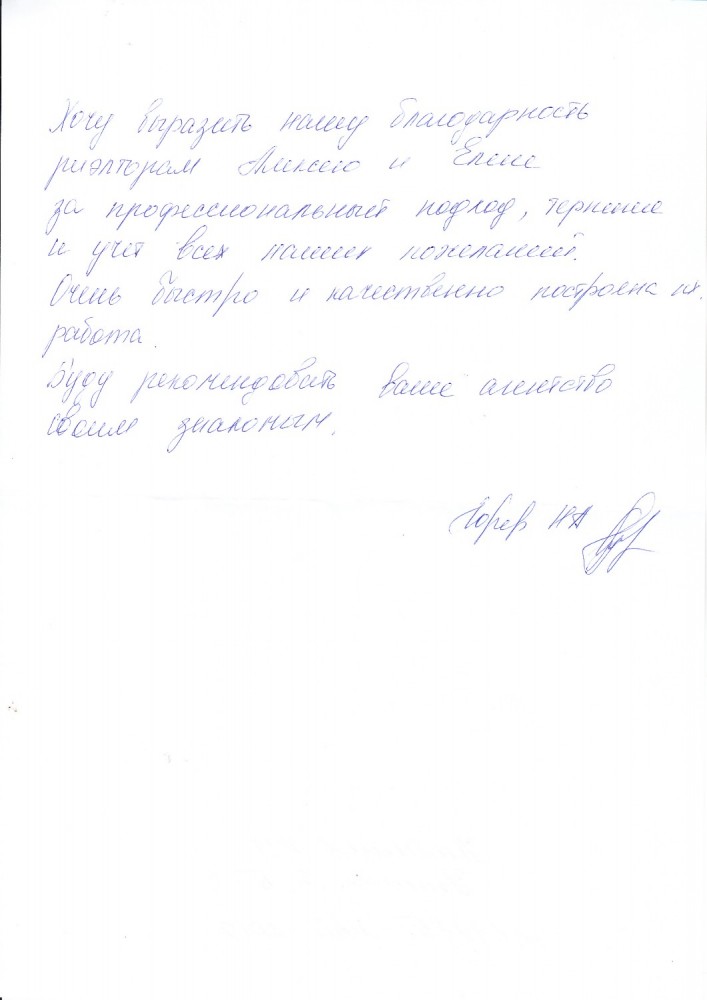 Хочу выразить нашу благодарность
риэлторам и Елене
за профессиональный подход, терпение
и учёт всех наших пожеланий.
Очень быстро и качественно построена их
работа.
Буду рекомендовать ваше агентство
своим знакомым.